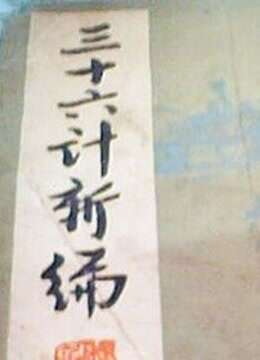 三十六计新编